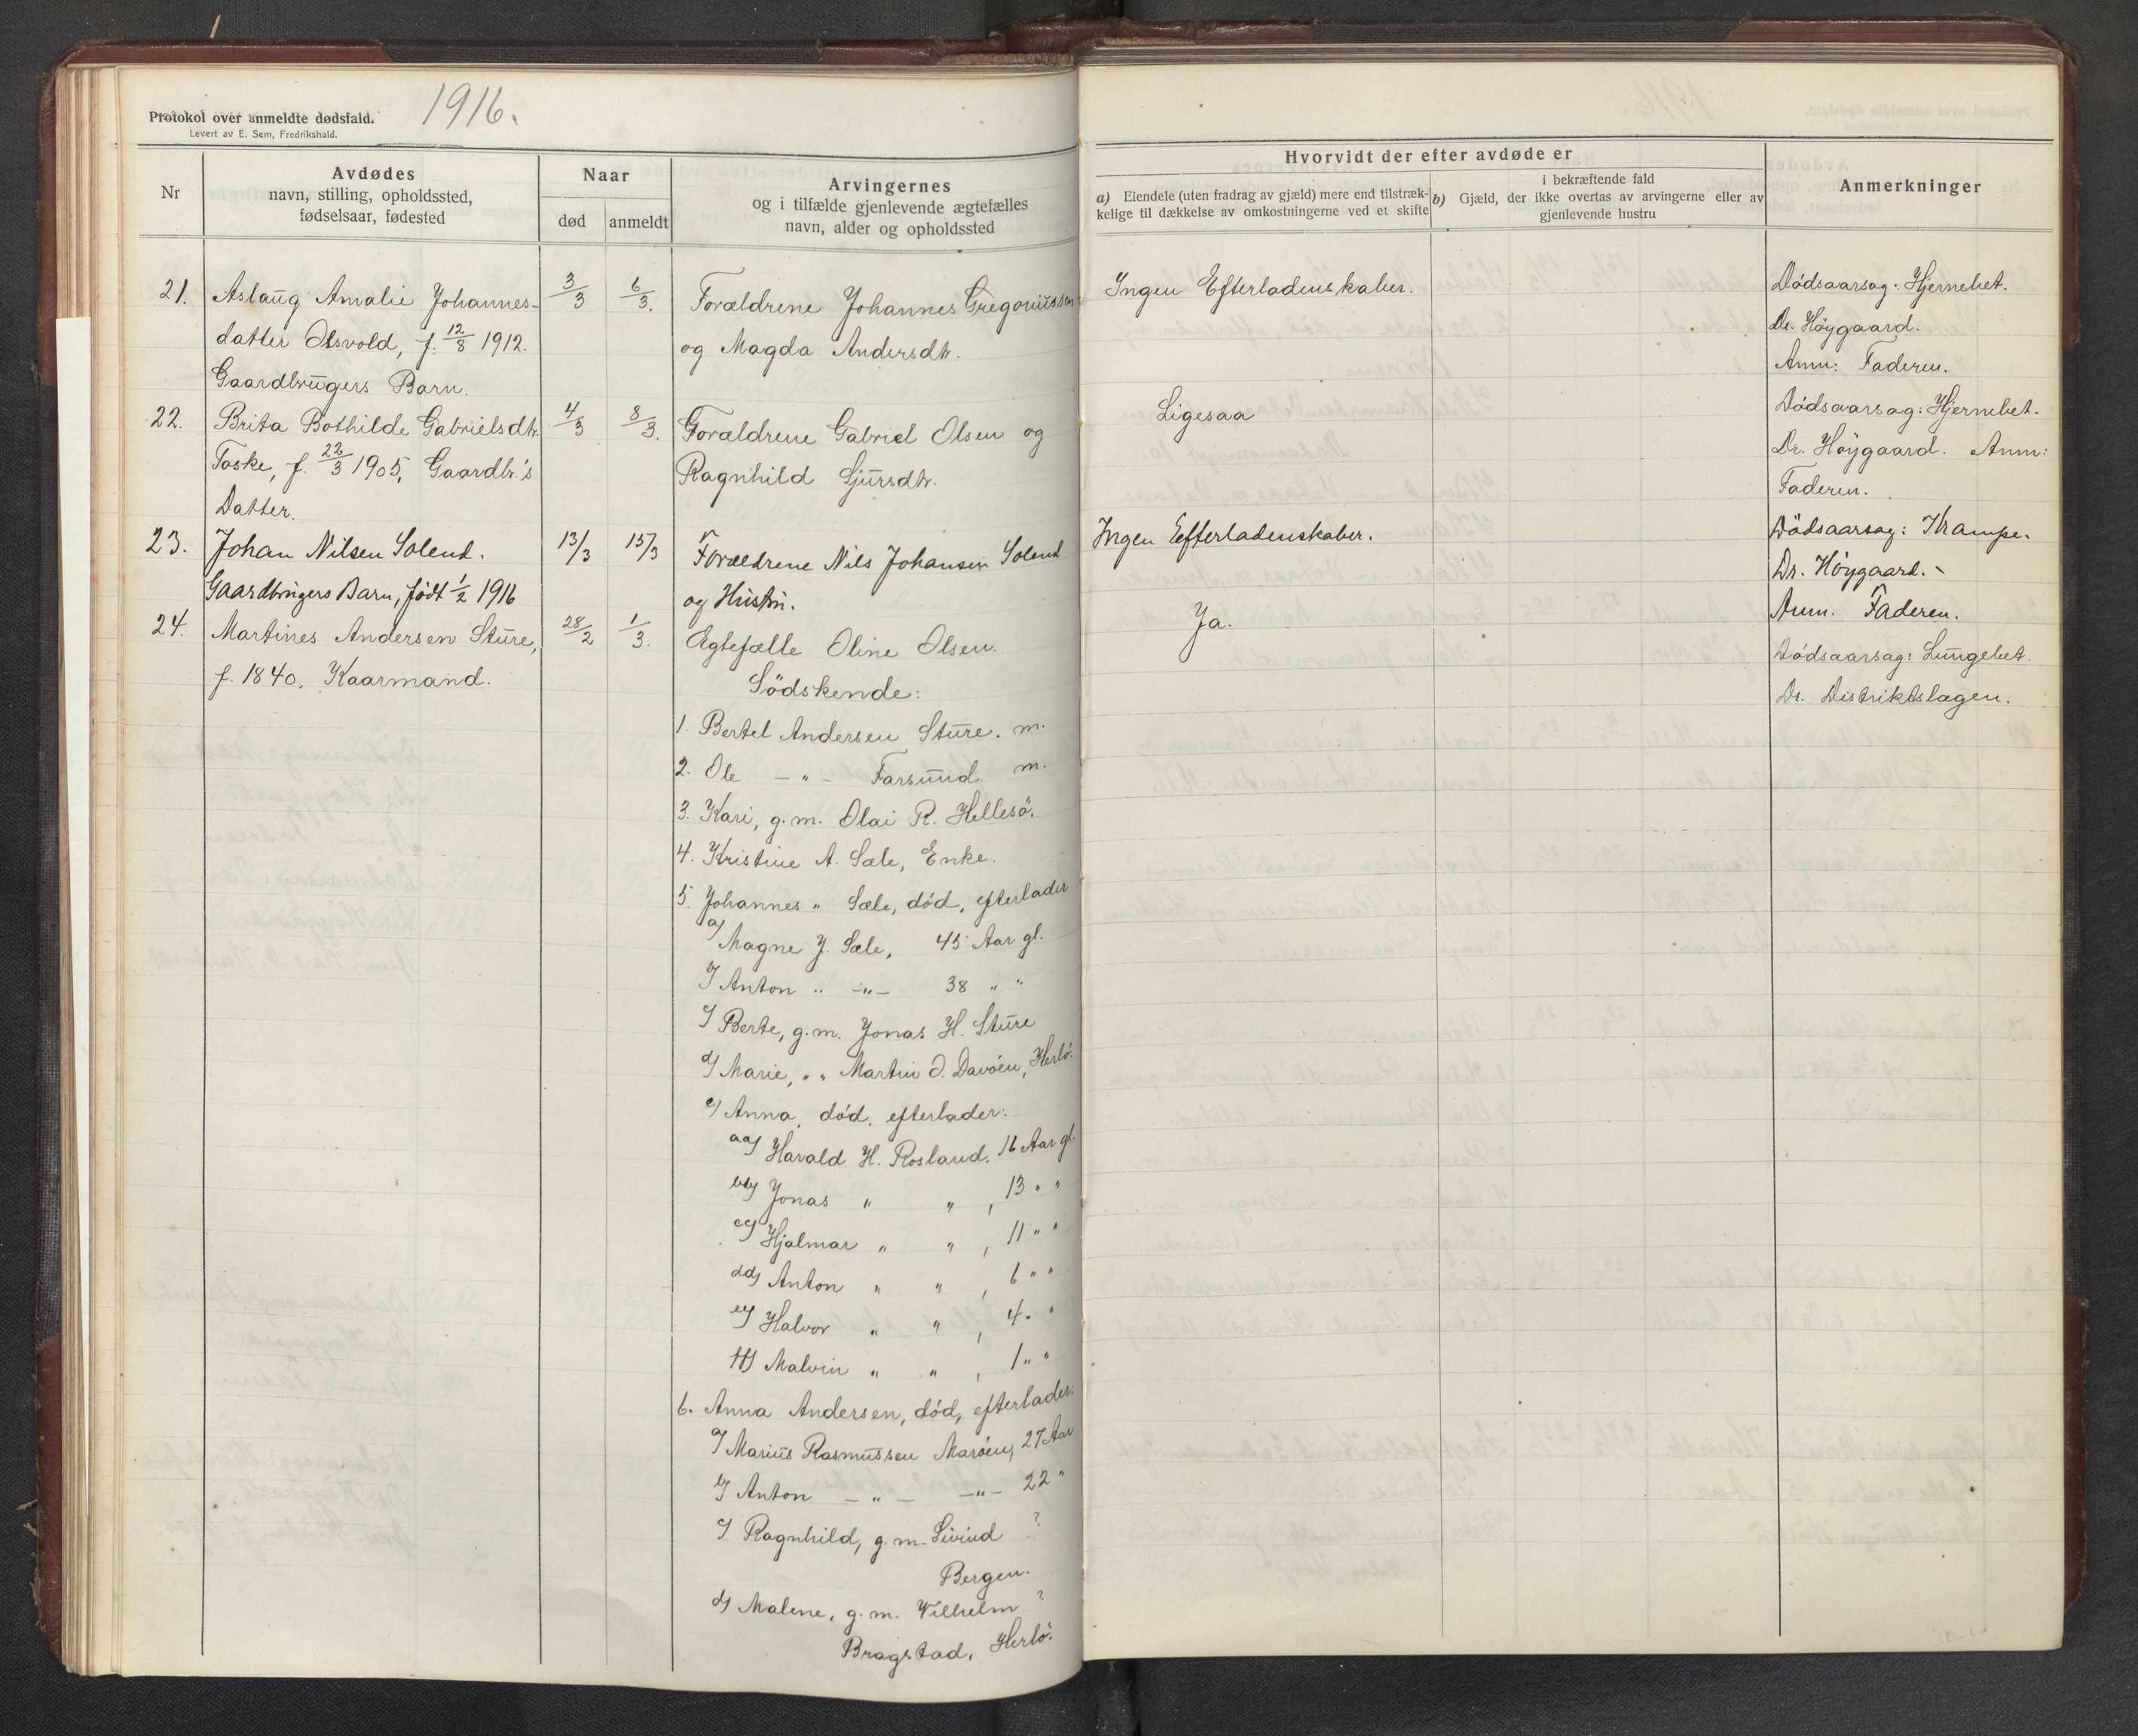 Protokol over anmeldte dødsfald.
Levert av E. Sem, Fredrikshald.
1916.
Nr
Avdødes
navn, stilling, opholdssted,
fødselsaar, fødested
Naar
død
anmeldt
Arvingernes
og i tilfælde gjenlevende ægtefælles
navn, alder og opholdssted
Hvorvidt der efter avdøde er
a) Eiendele (uten fradrag av gjæld) mere end tilstræk-
kelige til dækkelse av omkostningerne ved et skifte
i bekræftende fald
b) Gjæld, der ikke overtas av arvingerne eller av
gjenlevende hustru
Anmerkninger
21. Aslaug Amalie Johannes-
datter Olsvold, f. 12/8 1912.
Gaardbrugers Barn.
3/3
6/3.
Forældrene Johannes Gregoriussen
og Magda Andersdtr.
Ingen Efterladenskaber.
Dødsaarsag: Hjernebet.
Dr. Höygaard.
Anm: Faderen.
22. Brita Bothilde Gabrielsdtr.
Toske, f. 22/3 1905, Gaardbr.'s
Datter.
4/3
8/3.
Forældrene Gabriel Olsen og
Ragnhild Sjursdtr.
Ligesaa
Dödsaarsag: Hjernebet.
Dr. Höygaard. Anm:
Faderen.
23. Johan Nilsen Solend.
Gaardbrugers Barn, født 1/2 1916
13/3
15/3
Forældrene Nils Johansen Solend
og Hustru.
Ingen Efterladenskaber.
Dödsaarsag: Krampe.
Dr. Höygaard.
Anm. Faderen.
24. Martines Andersen Sture,
f. 1840. Kaarmand.
28/2
1/3.
Ja.
Dödsaarsag: Lungebet.
Dr. Distriktslægen.
Egtefælle Oline Olsen.
Södskende:
1. Bertel Andersen Sture. m.
2. Ole — " — Farsund. m.
3. Kari, g. m. Olai R. Hellesö.
4. Kristine A. Sæle, Enke.
5. Johannes " Sæle, död, efterlader
a) Magne J. Sæle, 45 Aar gl.
b) Anton " —"— 38 " "
c) Berte, g. m. Jonas H. Sture
d) Marie, " " Martin O. Davöen, Herlö.
e) Anna, död, efterlader:
aa) Harald H. Rosland. 16 Aar gl.
bb) Jonas " " , 13 " "
cc) Hjalmar " " , 11 " "
dd) Anton " " , 6 " "
ee) Halvor " " , 4 " "
ff) Malvin " " , 1 " "
6. Anna Andersen, död, efterlader:
a) Marius Rasmussen Maröen, 27 Aar
b) Anton — " — —"— 22 "
c) Ragnhild, g. m. Sivind ?
Bergen.
d) Malene, g. m. Vilhelm ?
Bragstad, Herlö.